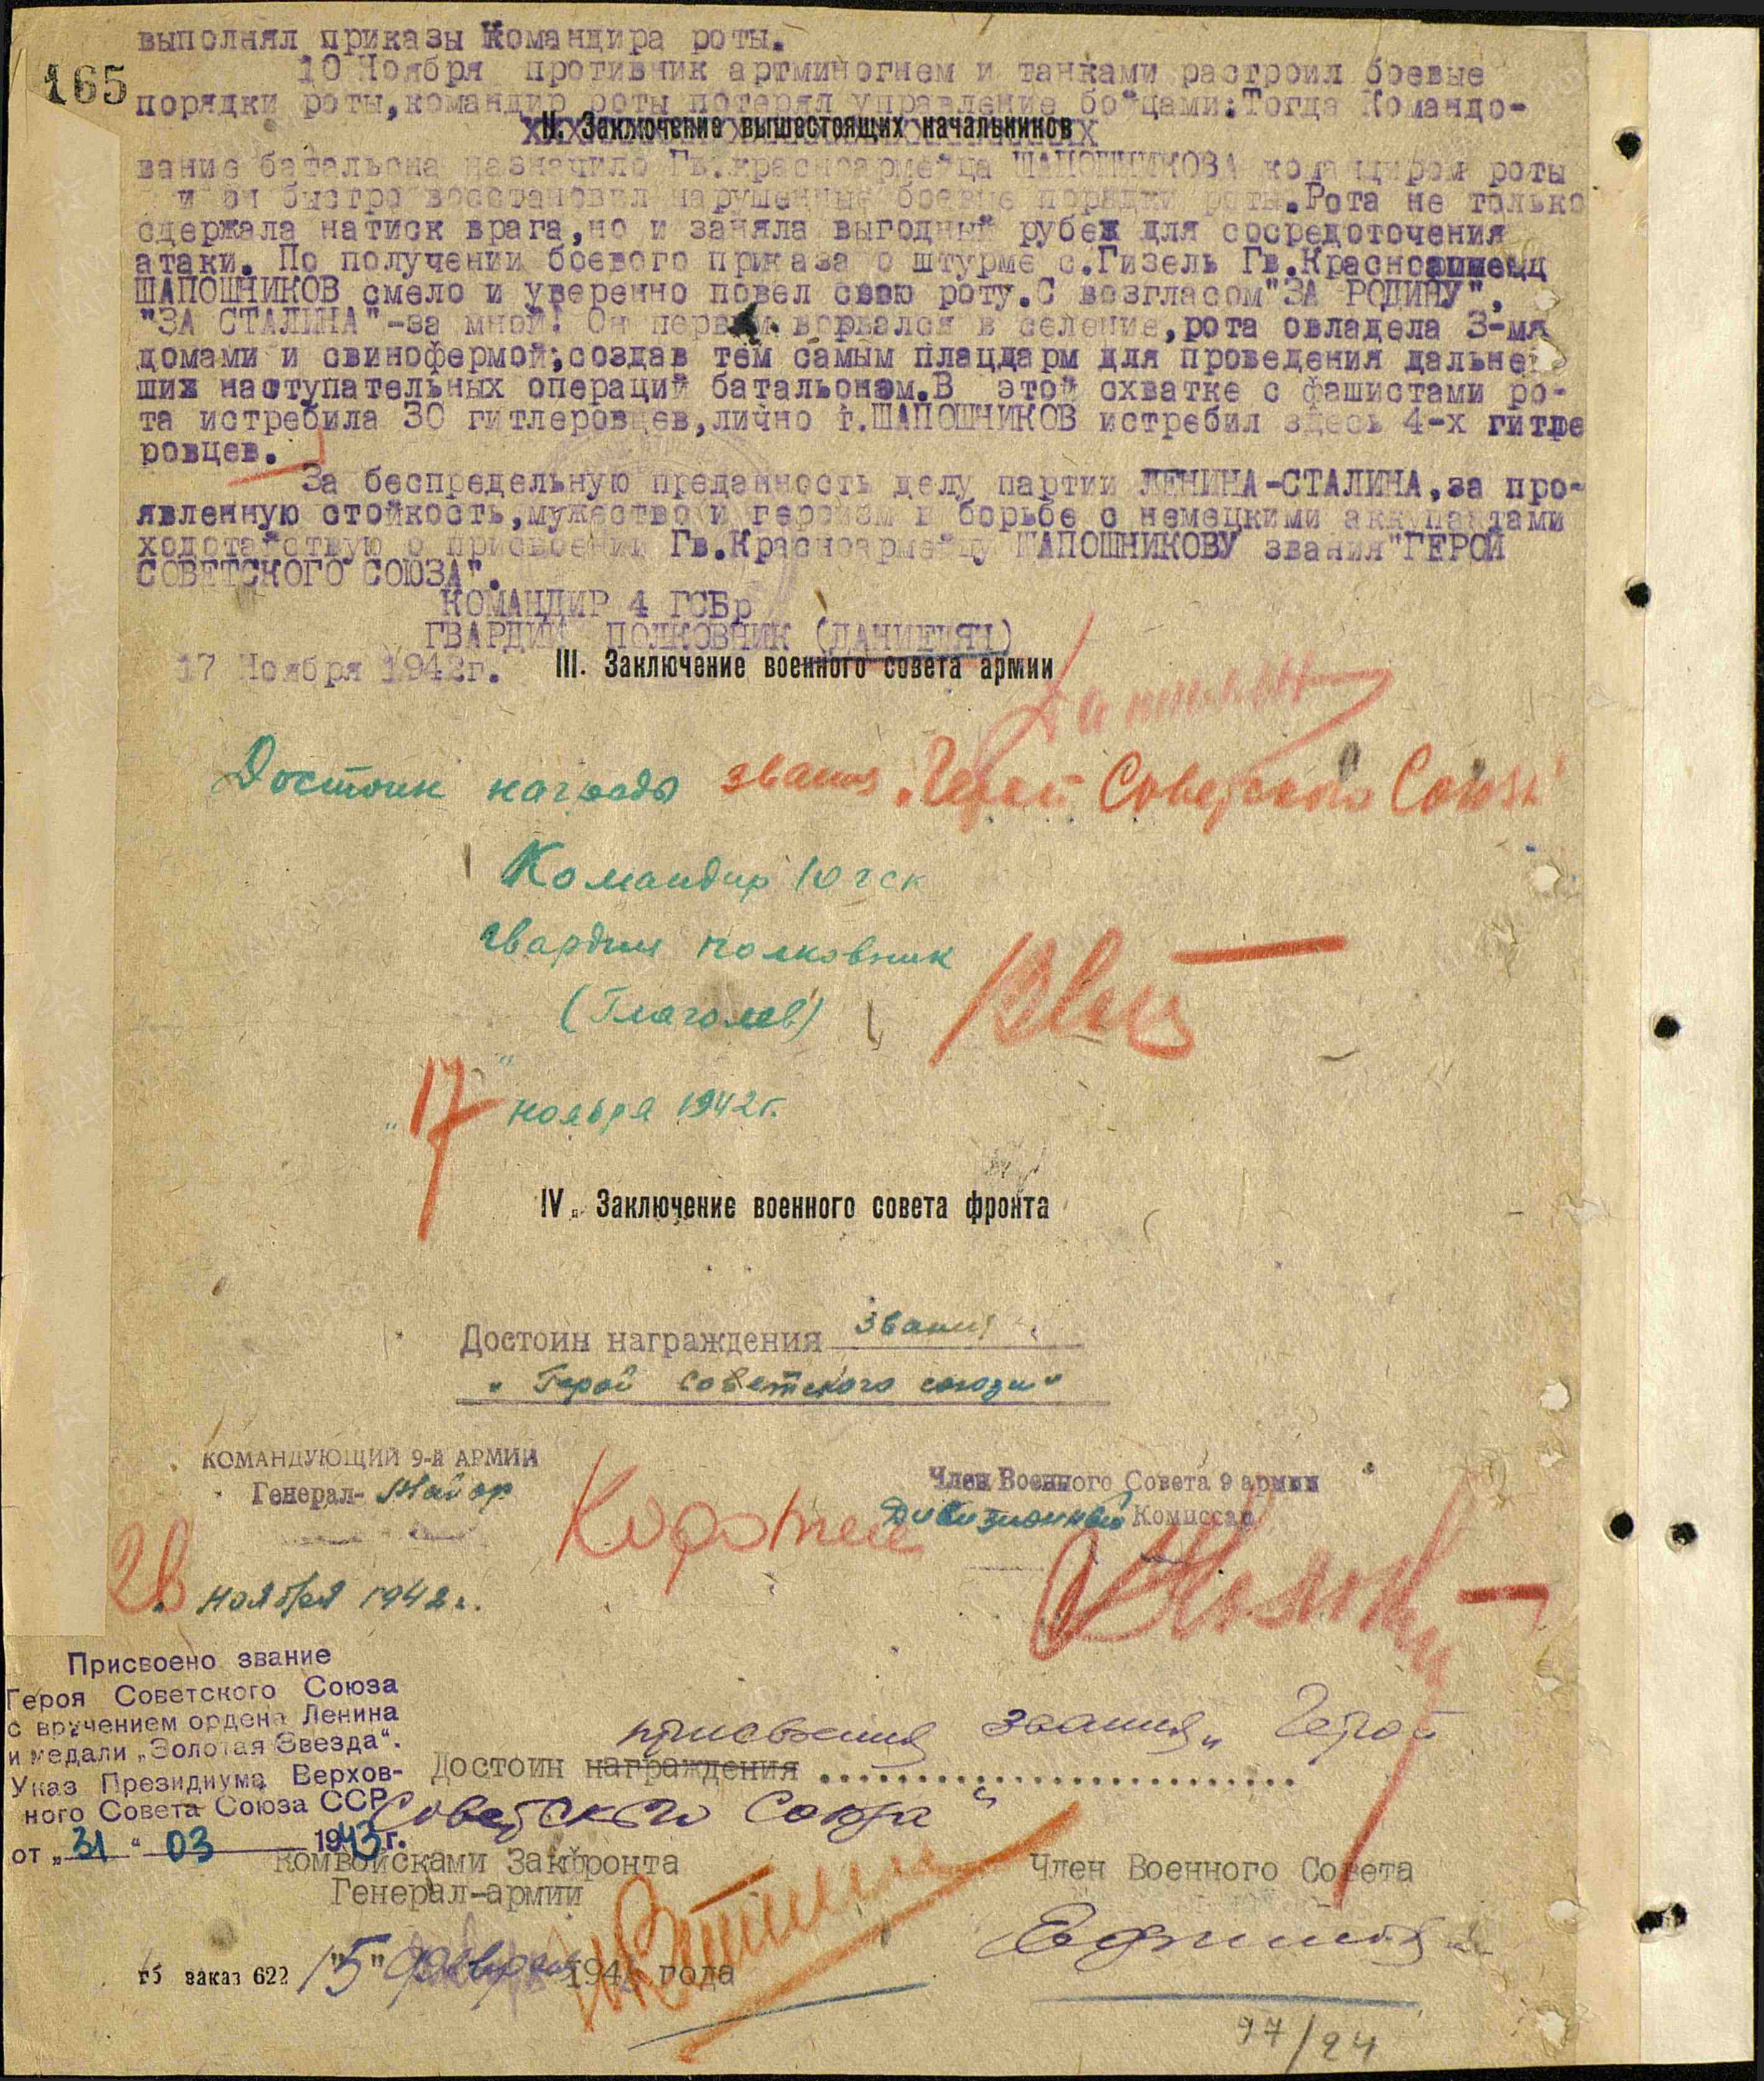 165
выполнял приказы Командира роты.
10 Ноября противник артминогнем и танками растроил боевые
порядки роты,командир роты потерял управление бойцами:Тогда Командо-
II. Заключение вышестоящих начальников
вание батальона назначило Гв.красноармейца ШАПОШНИКОВА командиром роты
и он быстро восстановил нарушенные боевые порядки роты.Рота не только
сдержала натиск врага,но и заняла выгодный рубеж для сосредоточения
атаки. По получении боевого приказа о штурме с.Гизель Гв.Красноармеец
ШАПОШНИКОВ смело и уверенно повел свою роту.С возгласом"ЗА РОДИНУ",
"ЗА СТАЛИНА"-за мной! Он первым ворвался в селение,рота овладела 3-мя
домами и свинофермой;создав тем самым плацдарм для проведения дальней
ших наступательных операций батальоном.В этой схватке с фашистами ро-
та истребила 30 гитлеровцев,лично т.ШАПОШНИКОВ истребил здесь 4-х гитле
ровцев.
За беспредельную преданность делу партии ЛЕНИНА-СТАЛИНА,за про-
явленную стойкость,мужество и героизм в борьбе с немецкими аккупантами
ходотайствую о присвоении Гв.Красноармейцу ШАПОШНИКОВУ звания"ГЕРОЙ
СОВЕТСКОГО СОЮЗА".
КОМАНДИР 4 ГСБр
ГВАРДИИ ПОЛКОВНИК (ДАНИЕЛЯН)
17 Ноября 1942г.
III. Заключение военного совета армии
Достоин награды звания „Герой Советского Союза"
Командир 10 гск
гвардии полковник
(Глаголев)
„17" ноября 1942г.
IV. Заключение военного совета фронта
Достоин награждения звания
„Герой советского союза"
КОМАНДУЮЩИЙ 9-й АРМИИ
Генерал-Майор
Член Военного Совета 9 армии
Дивизионный Комиссар
28 ноября 1942г.
Присвоено звание
Героя Советского Союза
с вручением ордена Ленина
и медали „Золотая Звезда".
Указ Президиума Верхов-
ного Совета Союза ССР
от „31" 03 1943г.
присвоения звания „Герой
Достоин награждения ..........................
Советского Союза"
Комвойсками Закфронта
Генерал-армии
Член Военного Совета
"15" февраля 194 года
г5 заказ 622
97/24